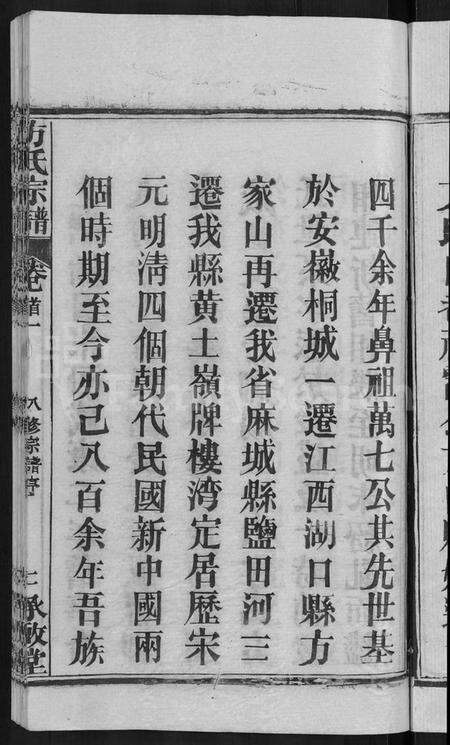 四千余年鼻祖萬七公其先世基
於安徽桐城一遷江西湖口縣方
家山再遷我省麻城縣鹽田河三
遷我縣黄土嶺牌樓湾定居歷宋
元明清四個朝代民國新中國兩
個時期至今亦已八百余年吾族
方氏宗譜
卷首一
八修宗譜序
承啟堂